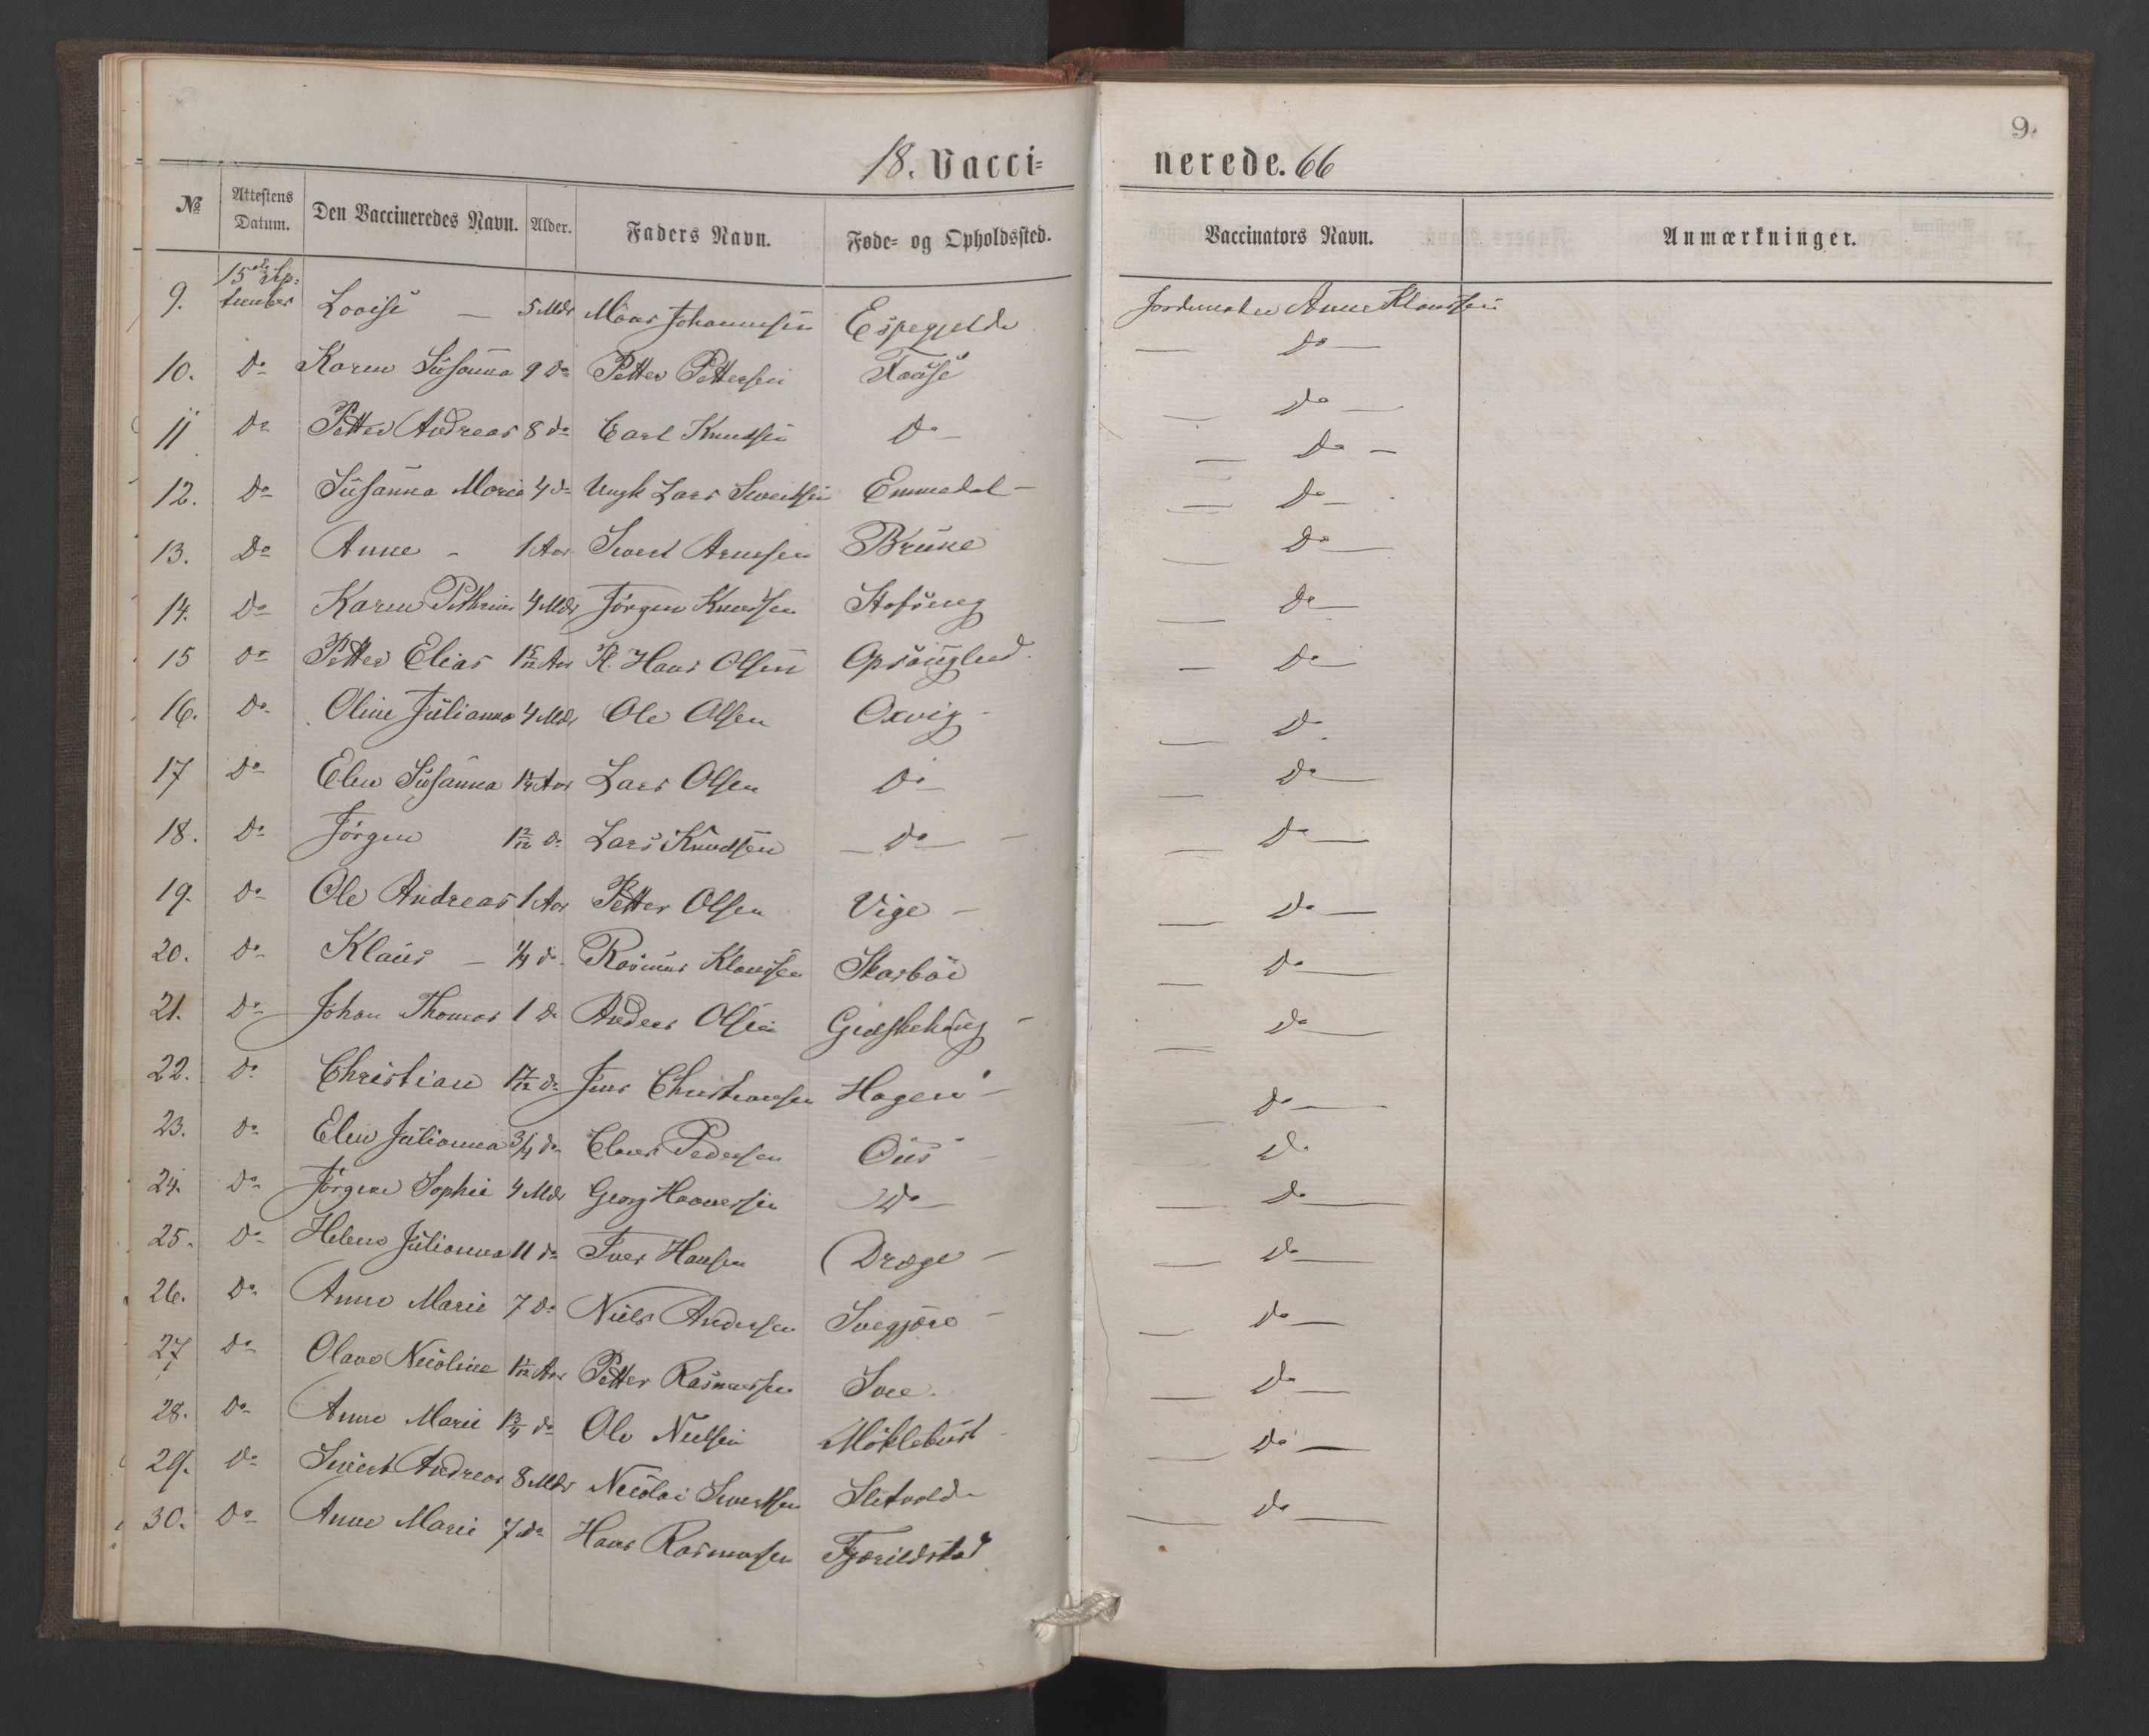 9.
18. Vacci-
nerede. 66
№ Attestens Datum. Den Vaccineredes Navn. Alder. Faders Navn. Føde- og Opholdssted. Vaccinators Navn. Anmærkninger.
9. 15de September Lovise — 5 Mdr Johannesen Espegjelde Jordemoder Anne Klaussen
10. Do Karen Susanna 9 Do Petter Pettersen Taase — Do —
11 Do Petter Andreas 8 do Carl Knudsen Do — — Do —
12. Do Susanna Marie 4 do Ungk Lars Sivertsen Emmedal — — Do —
13. Do Anne - 1 Aar Sivert Arnesen Brune — Do —
14. Do Karen Pethrine 4 Mdr Jørgen Knudsen Stofseng — Do —
15 do Petter Elias 1 5/12 Aar H. Hans Olsen — Do —
16. Do Oline Julianna 4 Mdr Ole Olsen Oxvig — — Do —
17 Do Elen Susanna 1 1/4 Aar Lars Olsen Do — — Do
18. Do Jørgen 1 2/12 do Lars Knudsen — do — — Do —
19. Do Ole Andreas 1 Aar Petter Olsen Vige — — Do —
20. Do Klaus — 1/4 do Rasmus Klaussen Skarbøe — Do —
21. Do Johan Thomas 1 do Anders Olsen Gjeskehaug — — Do —
22. Do Christian 1 7/12 do Jens Christiansen Hagen — — Do —
23. do Elen Julianna 3/4 do Claus Pedersen — Do —
24. Do Jørgine Sophie 4 Mdr Georg Do — Do
25. Do Helene Julianna 11 do Iver Hansen Drøge — — Do —
26. Do Anne Marie 7 do Niels Andersen Svegjøre — — Do —
27 Do Olave Nicoline 1 1/12 Aar Petter Rasmussen — Do —
28. Do Anne Marie 1 3/4 do Ole Nielsen Møklebust — Do —
29. Do Sivert Andreas 8 Mdr Nicolai Sivertsen Slitvolde — Do —
30. Do Anne Marie 7 do Hans Rasmussen Fjørildstad — Do —